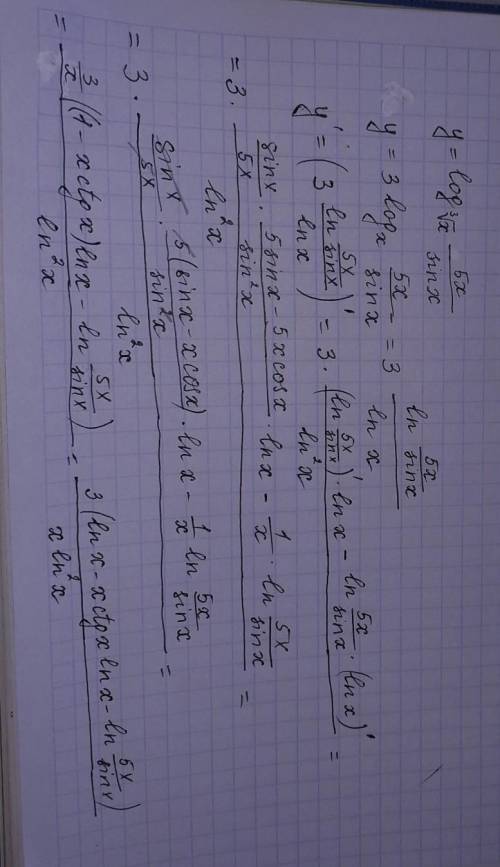 y = log_{∛x} \frac{5x}{sin x}
y = 3 log_x \frac{5x}{sin x} = 3 \frac{ln \frac{5x}{sin x}}{ln x}
y' = (3 \frac{ln \frac{5x}{sin x}}{ln x})' = 3 · \frac{(ln \frac{5x}{sin x})' · ln x - ln \frac{5x}{sin x} · (ln x)'}{ln² x} =
= 3 · \frac{\frac{sin x}{5x} · \frac{5 sin x - 5x cos x}{sin² x} · ln x - \frac{1}{x} · ln \frac{5x}{sin x}}{ln² x} =
= 3 · \frac{\frac{sin x}{5x} · \frac{5(sin x - x cos x)}{sin² x} · ln x - \frac{1}{x} ln \frac{5x}{sin x}}{ln² x} =
= \frac{\frac{3}{x} ((1 - x ctg x) ln x - ln \frac{5x}{sin x})}{ln² x} = \frac{3 (ln x - x ctg x ln x - ln \frac{5x}{sin x})}{x ln² x}